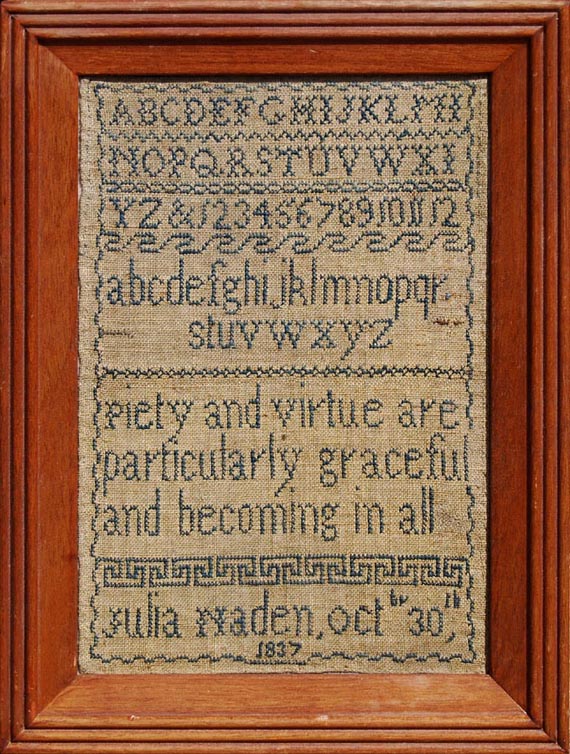 ABCDEFGHIJKLM
NOPQRSTUVWXI
YZ&123456789101112
abcdefghijklmnopqr
stuvwxyz
Piety and virtue are
particularly graceful
and becoming in all
Julia Naden, oct br 30, th
1837